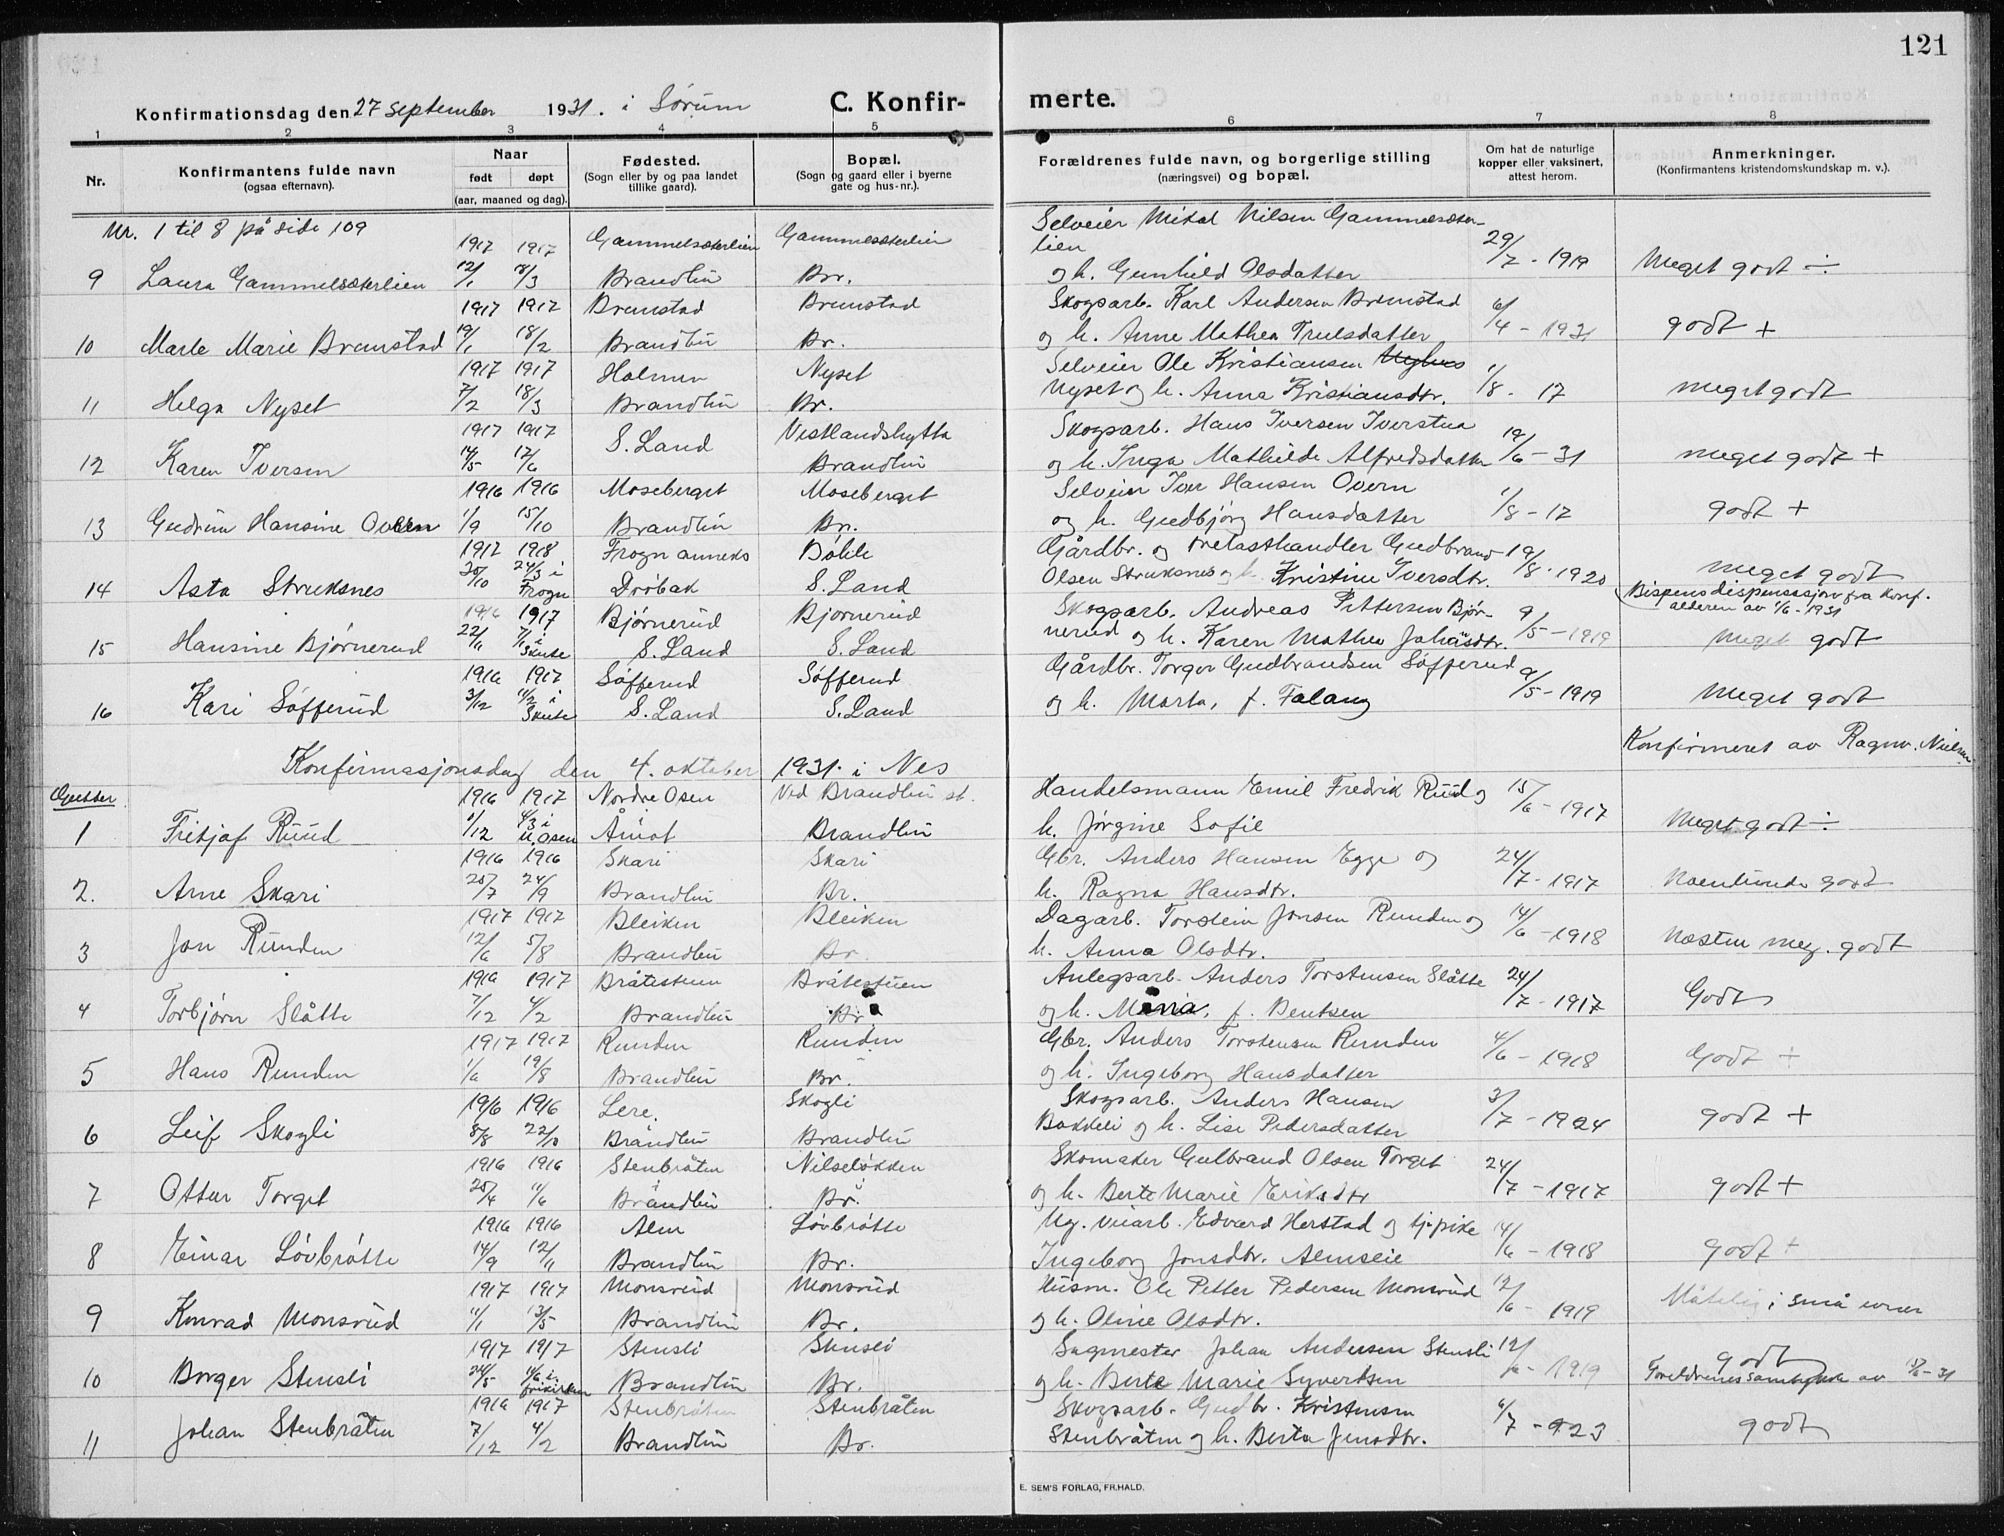 121
Konfirmationsdag den 27 september 1931. i Sørum C. Konfir- merte.
1 2 3 4 5 6 7 8
Nr. Konfirmantens fulde navn (ogsaa efternavn). Naar født døpt (aar, maaned og dag). Fødested. (Sogn eller by og paa landet tillike gaard). Bopæl. (Sogn og gaard eller i byerne gate og hus-nr.). Forældrenes fulde navn, og borgerlige stilling (næringsvei) og bopæl. Om hat de naturlige kopper eller vaksinert, attest herom. Anmerkninger. (Konfirmantens kristendomskundskap m. v.).
Nr. 1 til 8 på side 109
1917 1917 Gammelsæterlien Gammelsæterlien Selveier Mikal Nilsen Gammelsæter-
9 Laura Gammelsæterlien 12/1 Brandbu Br. lien og h. Gunhild Olsdatter 29/7 - 1919 Meget godt ÷
1917 1917 Bremstad Bremstad Skogsarb. Karl Andersen Bremstad
10 Marte Marie Bremstad 19/1 18/2 Brandbu Br. og h. Anne Mathea Trulsdatter 6/4 - 1931 godt +
1917 1917 Holmen Nyset Selveier Ole Kristiansen
11 Helga Nyset 7/2 18/3 Brandbu Br. Nyset og h. Anna Kristiansdtr. 1/8 - 17 meget godt
1917 1917 S. Land Vestlandshytta Skogsarb. Hans Iversen Iverstua
12 Karen Iversen 14/5 17/6 Brandbu og h. Inga Mathilde Alfredsdatter 19/6 - 31 meget godt +
1916 1916 Moseberget Moseberget Selveier Iver Hansen Overn
13 Gudrun Hansine Overn 1/9 15/10 Brandbu Br. og h. Gudbjørg Hansdatter 1/8 - 17 godt +
1917 1918 Frogn anneks Bøhle Gårdbr. og trelasthandler Gudbrand
14 Asta Struksnes 20/10 24/3 i Frogn Drøbak S. Land Olsen Struksnes og h. Kristine Iversdtr. 19/8 - 1920 meget godt
Bispens dispensasjon fra konf. alderen av 1/6 - 1931
1916 1917 Bjørnerud Bjørnerud Skogsarb. Andreas Pettersen Bjør-
15 Hansine Bjørnerud 22/11 7/1 i Skute S. Land S. Land nerud og h. Karen Mathea Johansdtr. 9/5 - 1919 meget godt
1916 1917 Søfferud Søfferud Gårdbr. Torger Gudbrandsen Søfferud
16 Kari Søfferud 3/12 11/2 i Skute S. Land S. Land og h. Marta, f. Falang 9/5 - 1919 Meget godt
Konfirmasjonsdag den 4. oktober 1931. i Nes Konfirmeret av Ragnv. Nielsen
Gutter
1916 1917 Nordre Osen Ved Brandbu st. Handelsmann Emil Fredrik Ruud og
1 Fritjof Ruud 1/12 4/3 i N. Osen Åmot Brandbu h. Jørgine Sofie 15/6 - 1917 Meget godt ÷
1916 1916 Skari Skari Gbr. Anders Hansen Egge og
2. Arne Skari 20/7 24/9 Brandbu Br. h. Ragna Hansdtr. 24/7 - 1917 Noenlunde godt
1917 1917 Bleiken Bleiken Dagarb. Torstein Jonsen Runden og
3 Jon Runden 12/6 5/8 Brandbu Br. h. Anna Olsdtr. 14/6 - 1918 Næsten meg. godt
1916 1917 Bråtestuen Bråtestuen Anlegsarb. Anders Torstensen Slåtte
4 Torbjørn Slåtte 7/12 4/2 Brandbu Br. og h. Maria, f. Bentsen 24/7 - 1917 Godt
1917 1917 Runden Runden Gbr. Anders Torstensen Runden
5 Hans Runden 1/6 19/8 Brandbu Br. og h. Ingeborg Hansdatter 4/6 - 1918 Godt ÷
1916 1916 Lere Skogli Skogsarb. Anders Hansen
6 Leif Skogli 8/8 22/10 Brandbu Brandbu Bakkeli og h. Lise Pedersdatter 3/7 - 1924 godt +
1916 1916 Stenbråten Nilseløkken Skomaker Gulbrand Olsen Torget
7 Ottar Torget 25/4 11/6 Brandbu Br. og h. Berte Marie Eriksdtr 24/7 - 1917 godt +
1916 1916 Alm Løvbråtte Ug. veiarb. Edvard Herstad og tj. pike
8 Einar Løvbråtte 14/9 12/11 Brandbu Br. Ingeborg Jonsdtr. Almseie 14/6 - 1918 godt +
1917 1917 Monsrud Monsrud Husm. Ole Petter Pedersen Monsrud
9 Konrad Monsrud 11/1 13/5 Brandbu Br. og h. Oline Olsdtr. 12/6 - 1919 Måtelig i små evner
1917 1917 Stensli Stensli Sagmester Johan Andersen Stensli
10 Borger Stensli 24/5 frikirken Brandbu Br. og h. Berte Marie Syvertsen 12/6 - 1919 godt
Foreldrenes samtykke av
1916 1917 Stenbråten Stenbråten Skogsarb. Gudbr. Kristensen
11 Johan Stenbråten 7/12 4/2 Brandbu Br. Stenbråten og h. Berta Jensdtr. 6/7 - 923 godt
E. SEM'S FORLAG, FR.HALD.